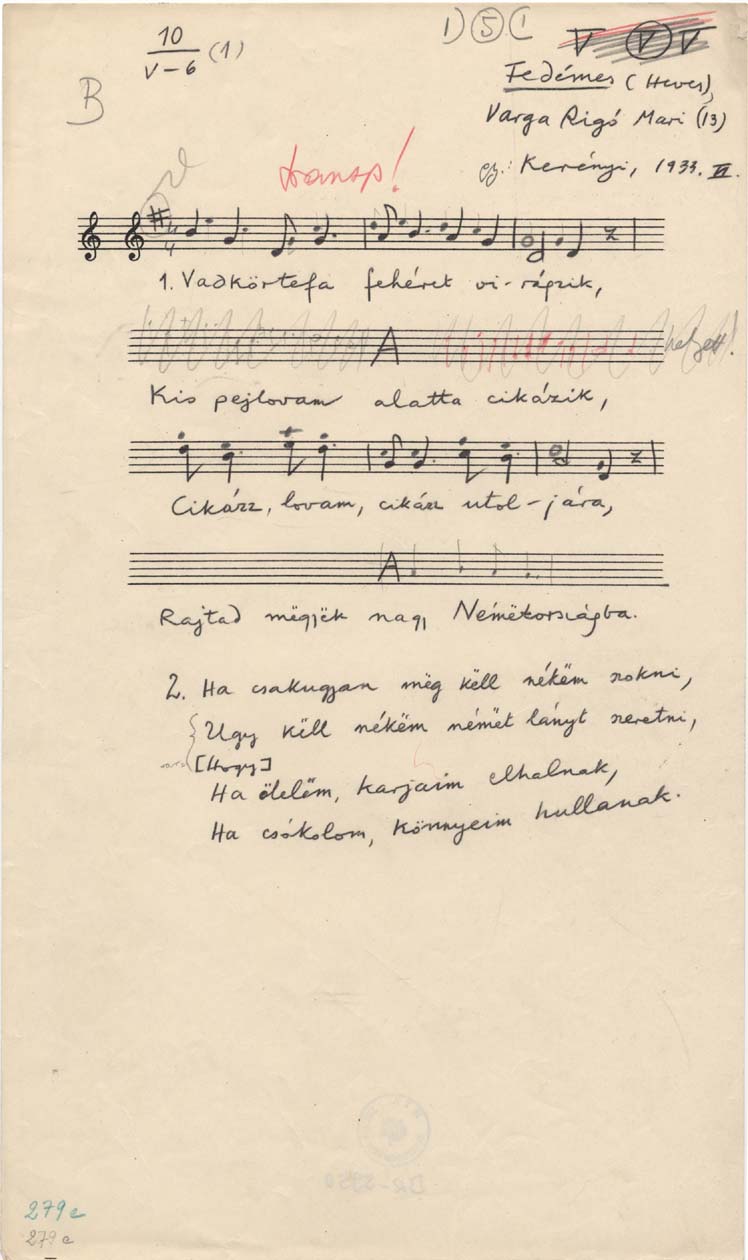 10
V-6 (1)
1) 5 (1
V V V
B
Fedémes (Heves),
Varga Rigó Mari (13)
gy.: Kerényi, 1933. VI.
4
4
1. Vadkörtefa fehéret vi-rágzik,
A helyett!
Kis pejlovam alatta cikázik,
Cikázz, lovam, cikázz utol-jára,
A
Rajtad mëgyëk nagy Németországba.
2. Ha csakugyan mëg këll nékëm szokni,
Ugy këll nékëm német lányt szeretni,
[Hogy]
Ha ölelëm, karjaim elhalnak,
Ha csókolom, könnyeim hullanak.
279c
279c